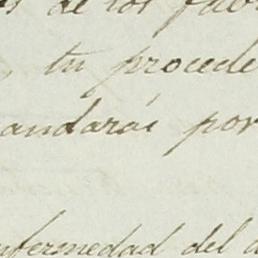 de los fabr
, tu procede
andarás por
nfermedad del a